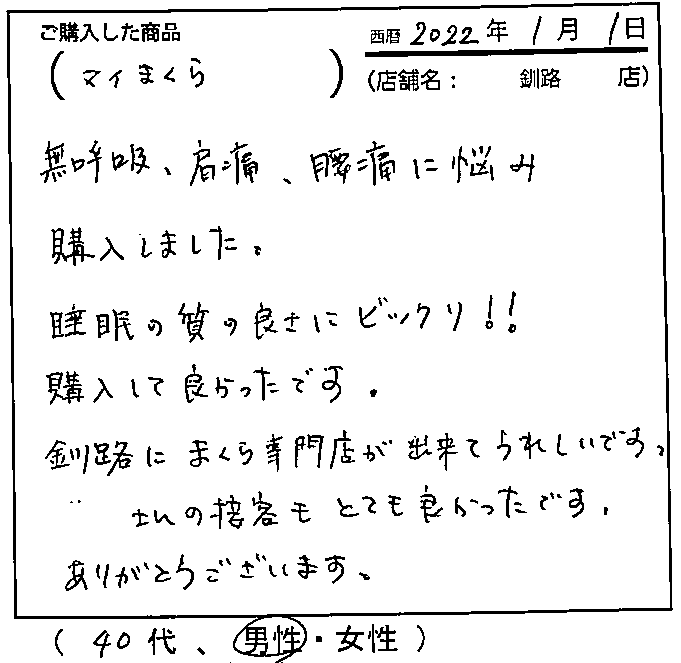 ご購入した商品
西暦 2022年 1月 1日
(マイまくら)
(店舗名: 釧路 店)
無呼吸、肩痛、腰痛に悩み
購入しました。
睡眠の質の良さにビックリ!!
購入して良かったです。
釧路にまくら専門店が出来てうれしいです。
さんの接客もとても良かったです。
ありがとうございます。
(40代、男性・女性)